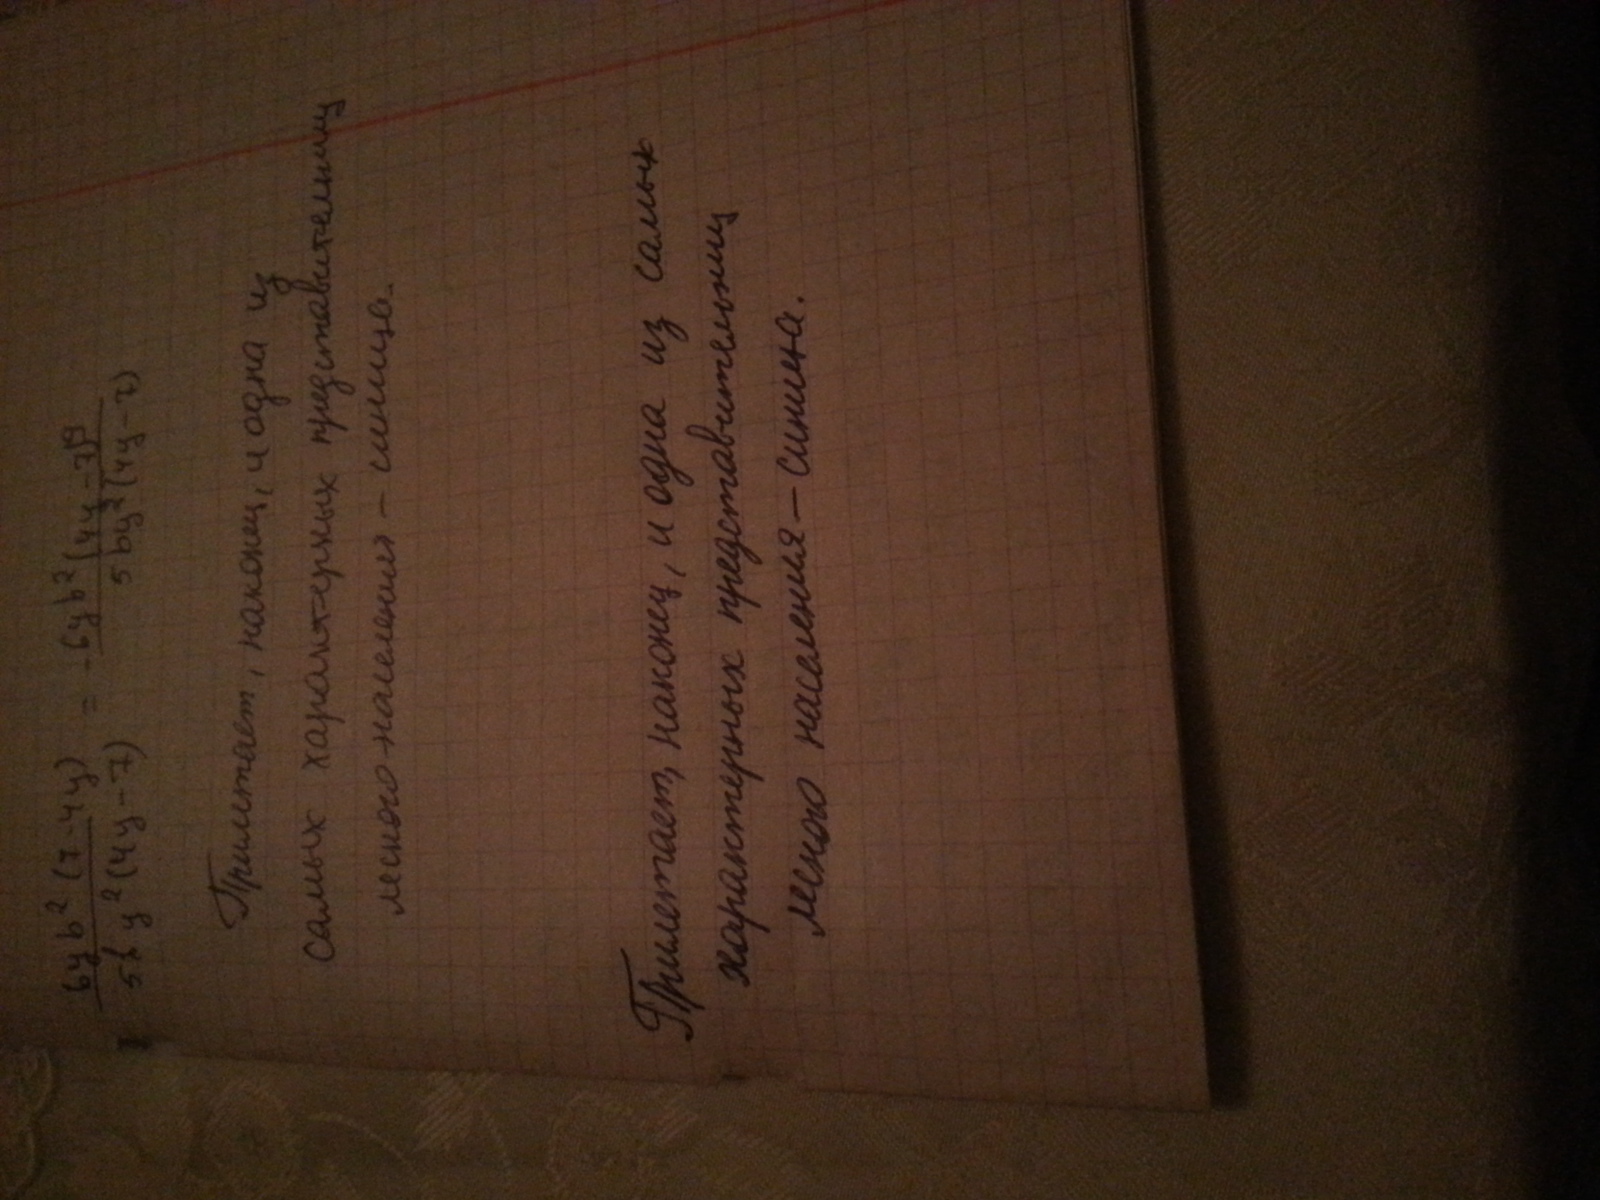 6yb²(7-4y) / 5by²(4y-7) = -6yb²(4y-7) / 5by²(4y-7)
Прилетает, наконец, и одна из
самых характерных представительниц
лесного населения – синица.
Прилетает, наконец, и одна из самых
характерных представительниц
лесного населения – синица.